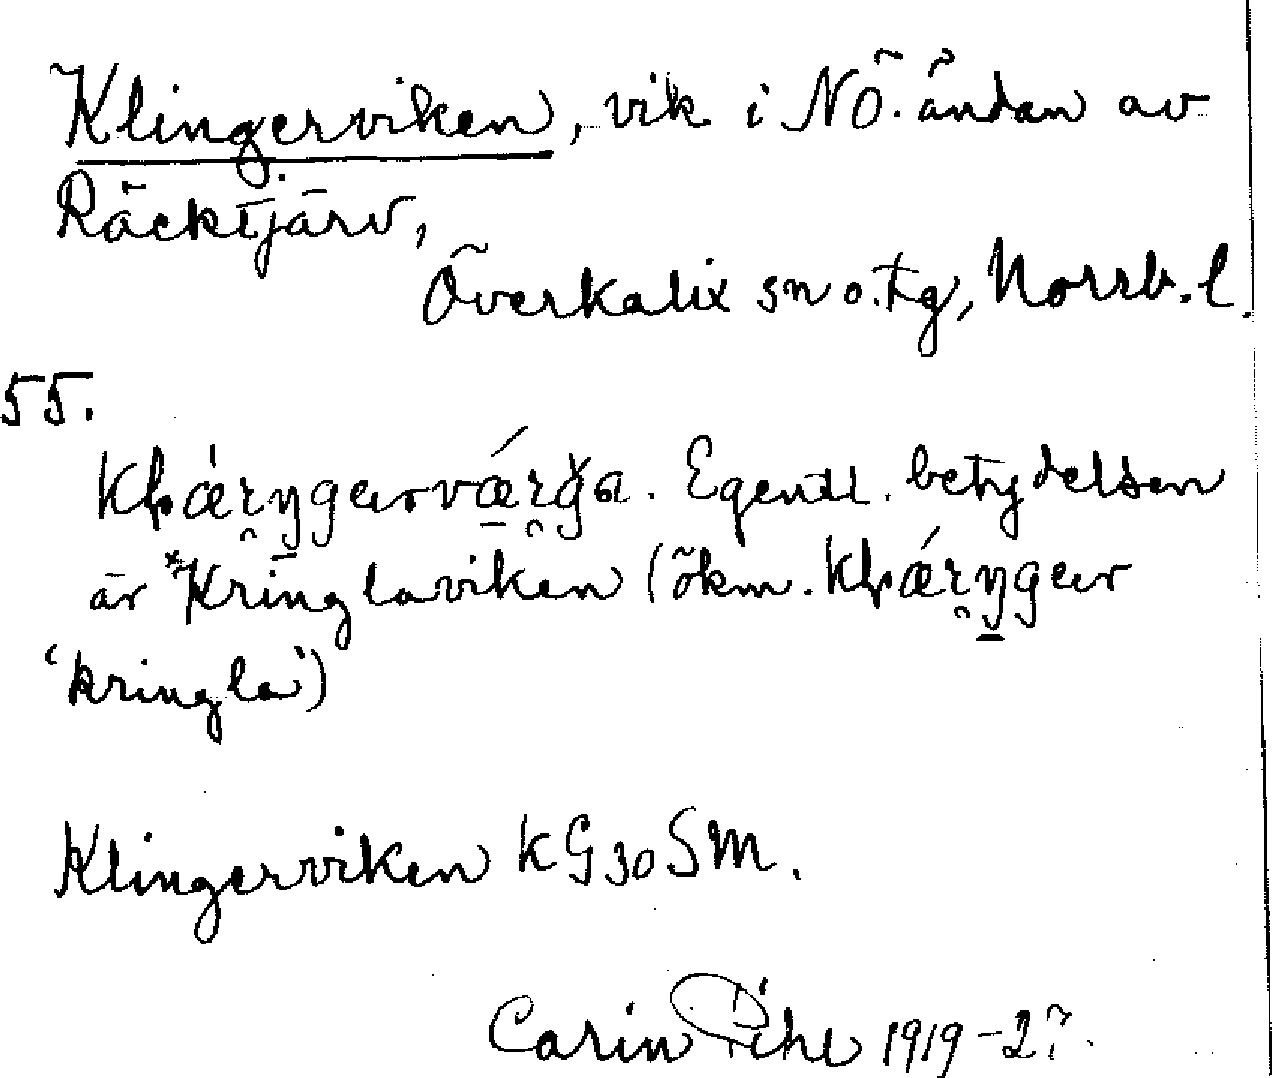 Klingerviken, vik i NÖ. ändan av
Räcktjärv,
Överkalix sn o. tg, Norrb. l.
55.
Egentl. betydelsen
är *Kringlaviken (ökm.
‘kringla’)
Klingerviken kG 30 SM.
Carin Pihl 1919-27.